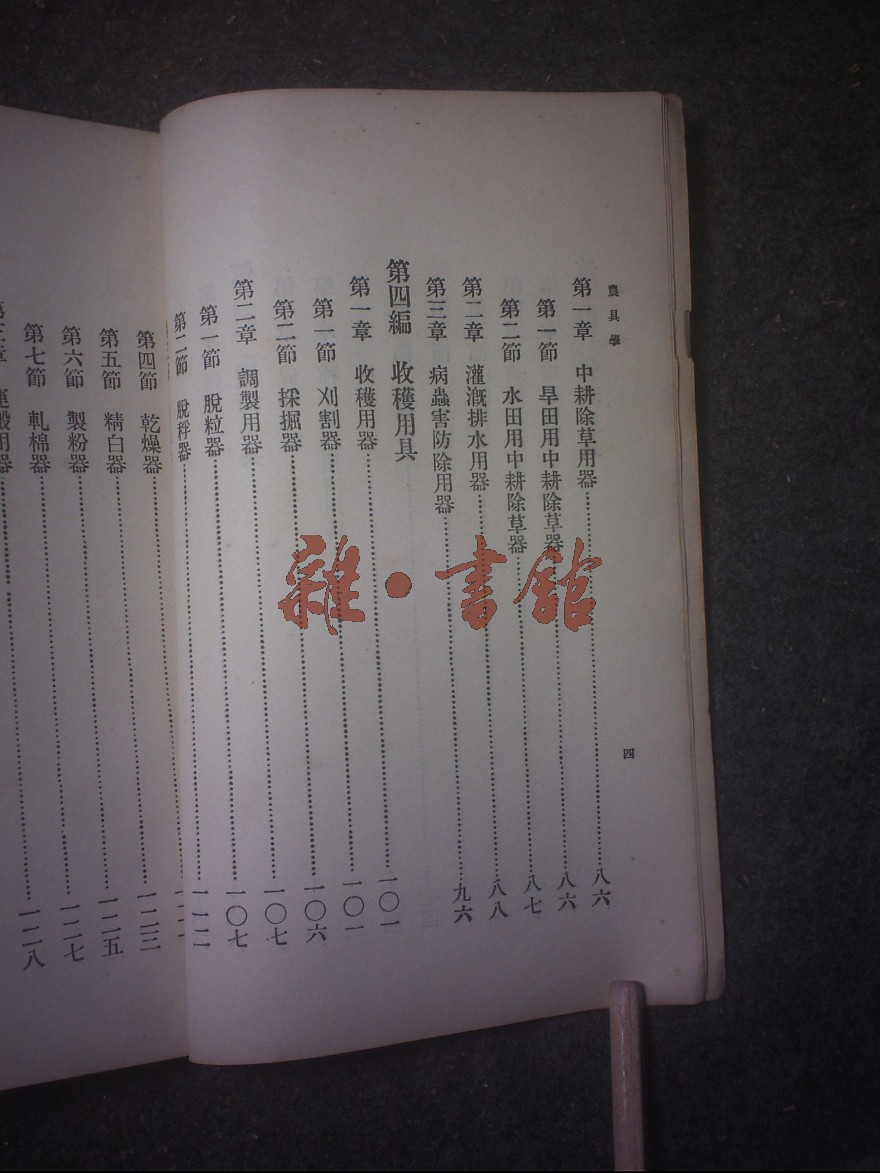 農具學
四
第一章 中耕除草用器……八六
第一節 旱田用中耕除草器……八六
第二節 水田用中耕除草器……八七
第二章 灌漑排水用器……八八
第三章 病蟲害防除用器……九六
第四編 收穫用具
第一章 收穫用器……一〇一
第一節 刈割器……一〇一
第二節 採掘器……一〇六
第二章 調製用器……一〇七
第一節 脫粒器……一〇七
第二節 脫稃器……一一二
第四節 乾燥器……一二三
第五節 精白器……一二五
第六節 製粉器……一二七
第七節 軋棉器……一二八
章 運搬用器
雜·書館